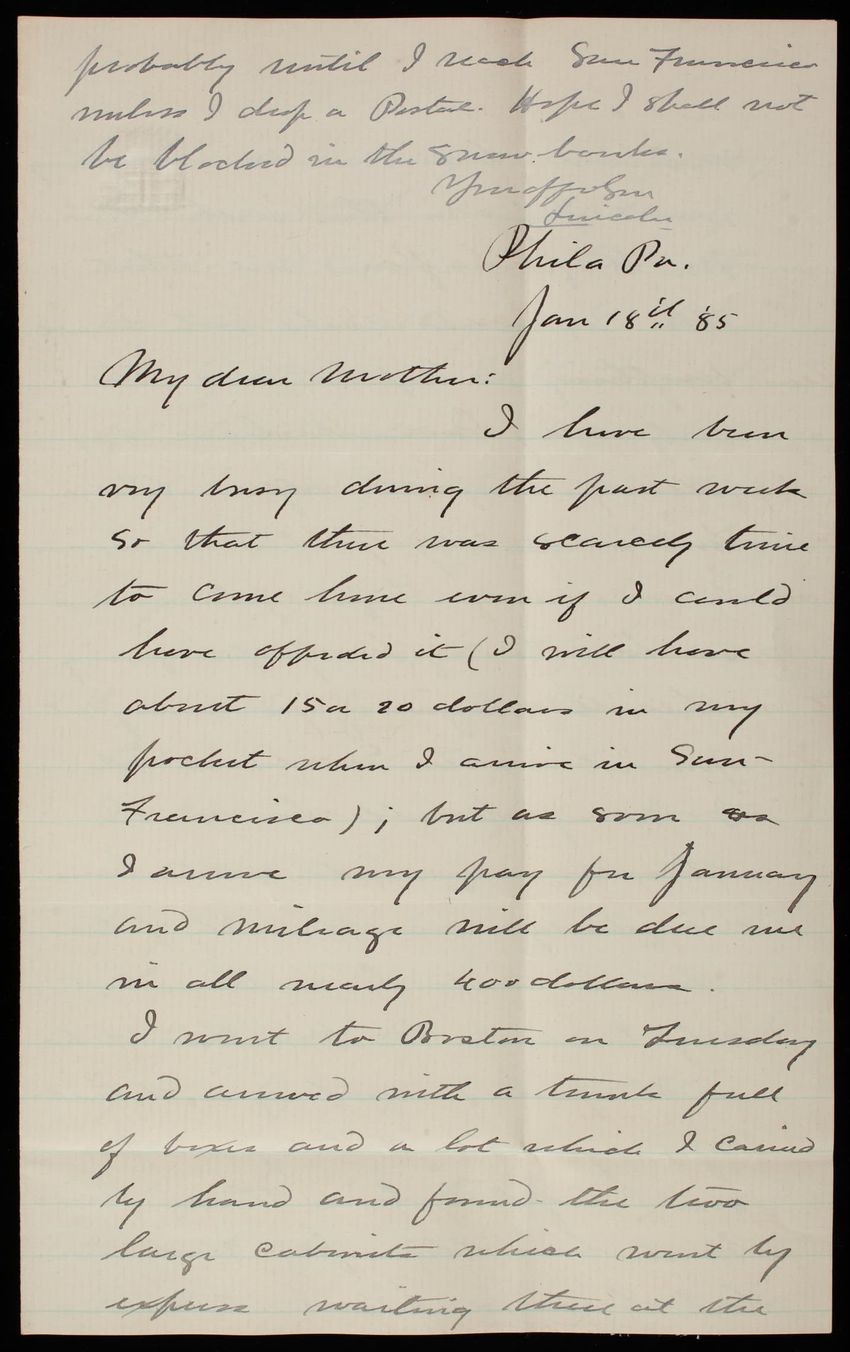 probably until I reach San Francisco
unless I drop a Postal. Hope I shall not
be blocked in the snow banks.
Your aff son
Lincoln
Phila Pa.
Jan 18th '85
My dear Mother:
I have been
very busy during the past week
so that there was scarcely time
to come home even if I could
have afforded it (I will have
about 15 or 20 dollars in my
pocket when I arrive in San-
Francisco); but as soon as
I arrive my pay for January
and mileage will be due me
in all nearly 400 dollars.
I went to Boston on Tuesday
and arrived with a trunk full
of boxes and a lot which I carried
by hand and found the two
large cabinets which went by
express waiting there at the